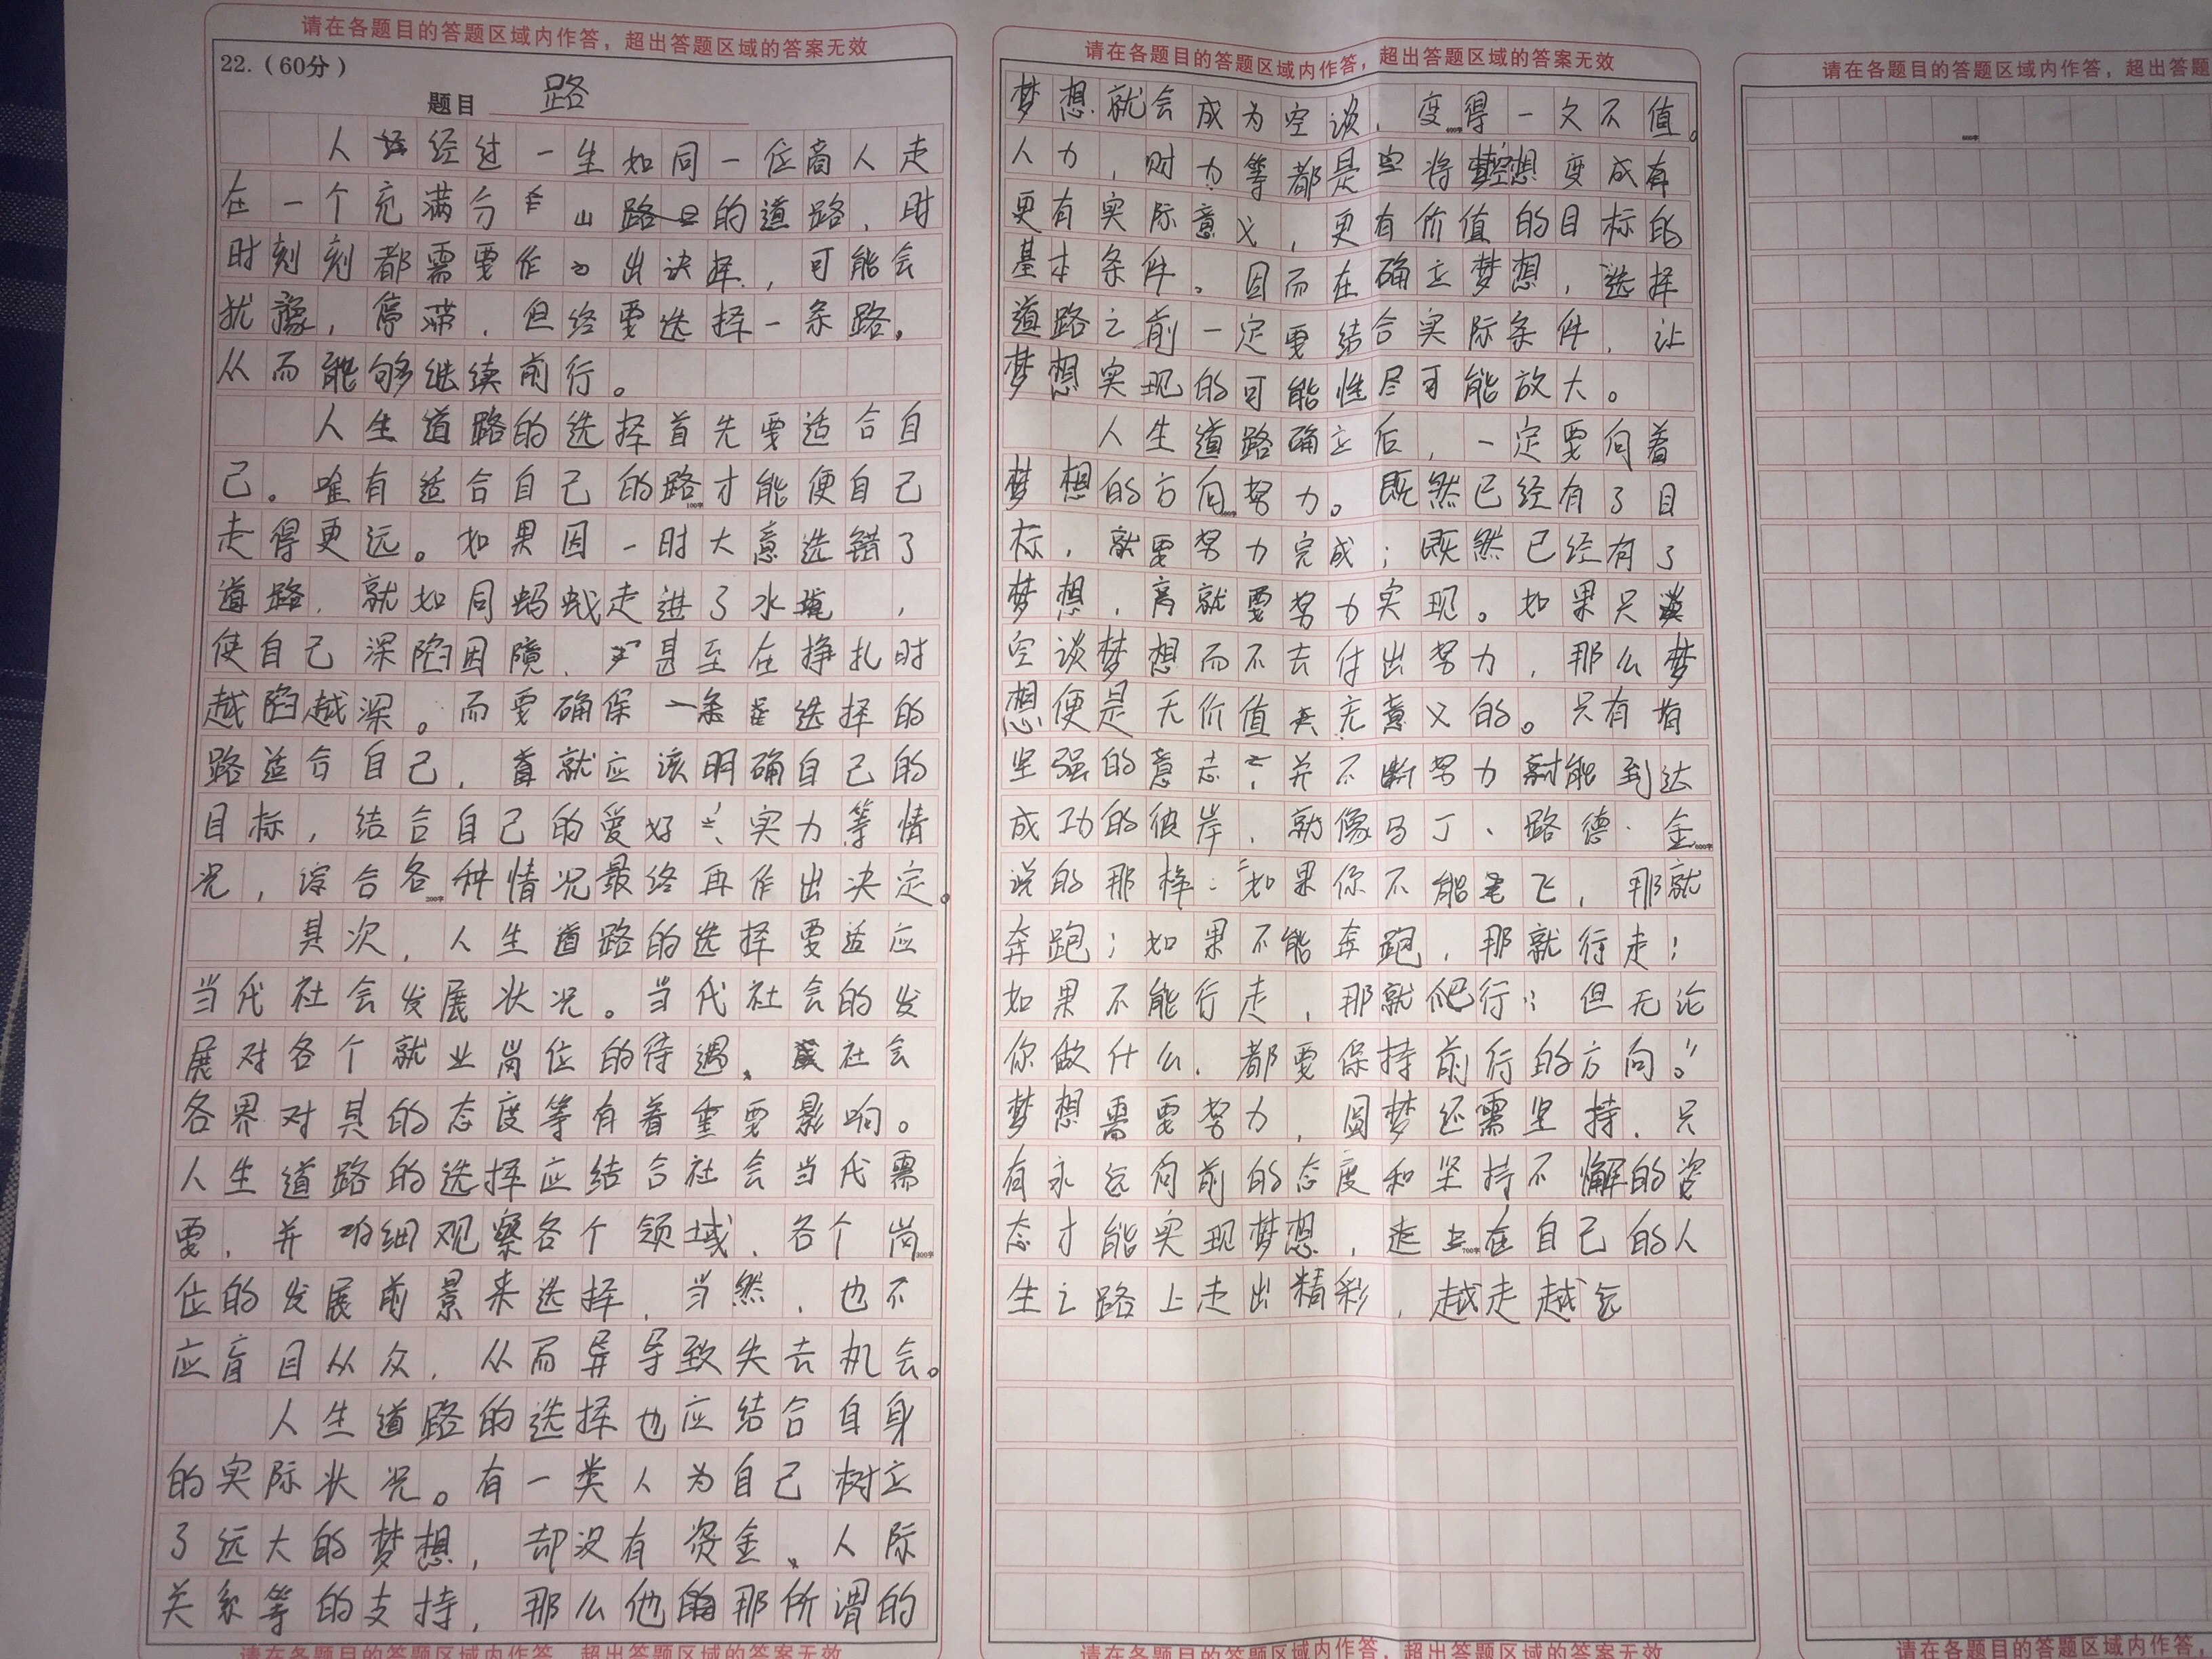 请在各题目的答题区域内作答，超出答题区域的答案无效
22.（60分）
题目 路
人经过一生如同一位商人走
在一个充满分岔的道路，时
时刻刻都需要作出诀择，可能会
犹豫，停滞，但终要选择一条路，
从而能够继续前行。
人生道路的选择首先要适合自
己。唯有适合自己的路才能使自己
100字
走得更远。如果因一时大意选错了
道路，就如同蚂蚁走进了水，
使自己深陷困境，甚至在挣扎时
越陷越深。而要确保选择的
路适合自己，就应该明确自己的
目标，结合自己的爱好、实力等情
况，综合各种情况最终再作出决定。
200字
其次，人生道路的选择要适应
当代社会发展状况。当代社会的发
展对各个就业岗位的待遇、社会
各界对其的态度等有着重要影响。
人生道路的选择应结合社会当代需
要，并细观察各个领域、各个岗
300字
位的发展前景来选择，当然，也不
应盲目从众，从而导致失去机会。
人生道路的选择也应结合自身
的实际状况。有一类人为自己树立
了远大的梦想，却没有资金、人际
关系等的支持，那么他那所谓的
请在各题目的答题区域内作答，超出答题区域的答案无效
请在各题目的答题区域内作答，超出答题区域的答案无效
梦想就会成为空谈，变得一文不值。
400字
人力，财力等都是将空想变成有
更有实际意义，更有价值的目标的
基本条件。因而在确立梦想，选择
道路之前一定要结合实际条件，让
梦想实现的可能性尽可能放大。
人生道路确立后，一定要向着
梦想的方向努力。既然已经有了目
500字
标，就要努力完成；既然已经有了
梦想，就要努力实现。如果只
空谈梦想而不去付出努力，那么梦
想便是无价值无意义的。只有有
坚强的意志，并不断努力才能到达
成功的彼岸，就像马丁·路德·金
600字
说的那样：“如果你不能飞，那就
奔跑；如果不能奔跑，那就行走；
如果不能行走，那就爬行；但无论
你做什么，都要保持前行的方向。”
梦想需要努力，圆梦还需坚持，只
有永远向前的态度和坚持不懈的姿
态才能实现梦想，走在自己的人
700字
生之路上走出精彩，越走越远
请在各题目的答题区域内作答，超出答题区域的答案无效
请在各题目的答题区域内作答，超出答题
请在各题目的答题区域内作答，